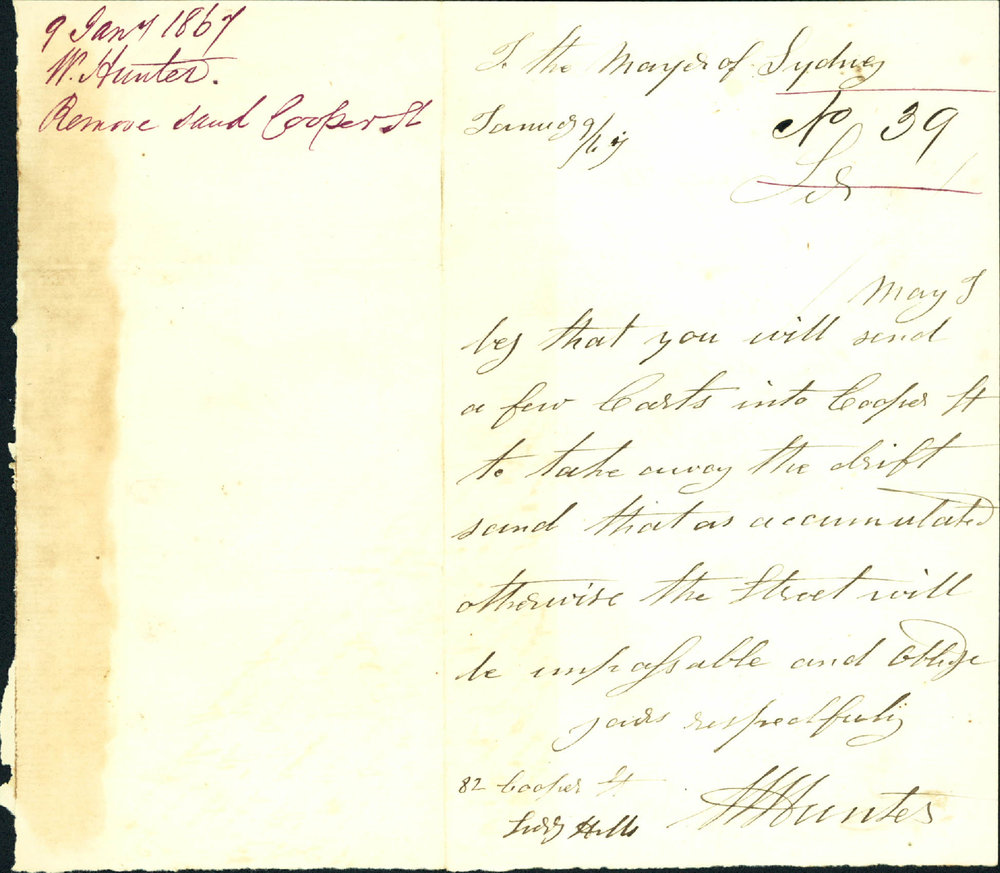 9 Jany 1867
W. Hunter.
Remove sand Cooper St
To the Mayor of Sydney
January 9/67
No 39
Sir
May I
beg that you will send
a few Carts into Cooper St
to take away the drift
sand that as accumulated
otherwise the Street will
be impassable and Oblige
yours respectfully
82 Cooper St
Surry Hills
W Hunter